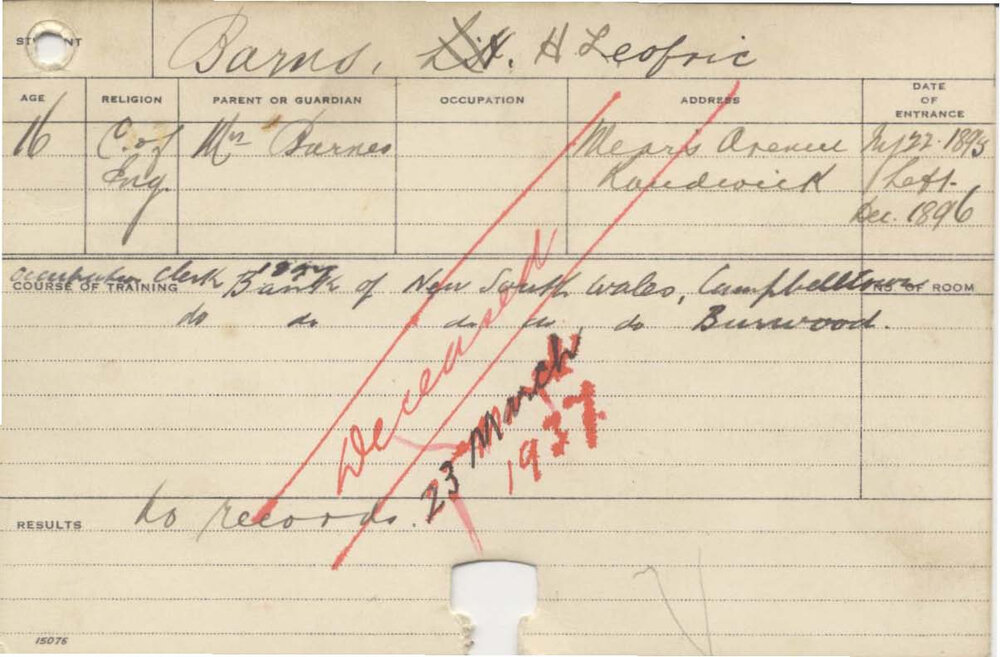 STUDENT
Barns, H Leofric
AGE RELIGION PARENT OR GUARDIAN OCCUPATION ADDRESS DATE OF ENTRANCE
16 C. of Mrs Barnes Mears Avenue July 22. 1895
Eng. Randwick Left
Dec. 1896
Clerk Bank of New South Wales, Campbelltown
COURSE OF TRAINING NO. OF ROOM
do do do do do Burwood.
Deceased
23 March
1937
RESULTS No records.
15076